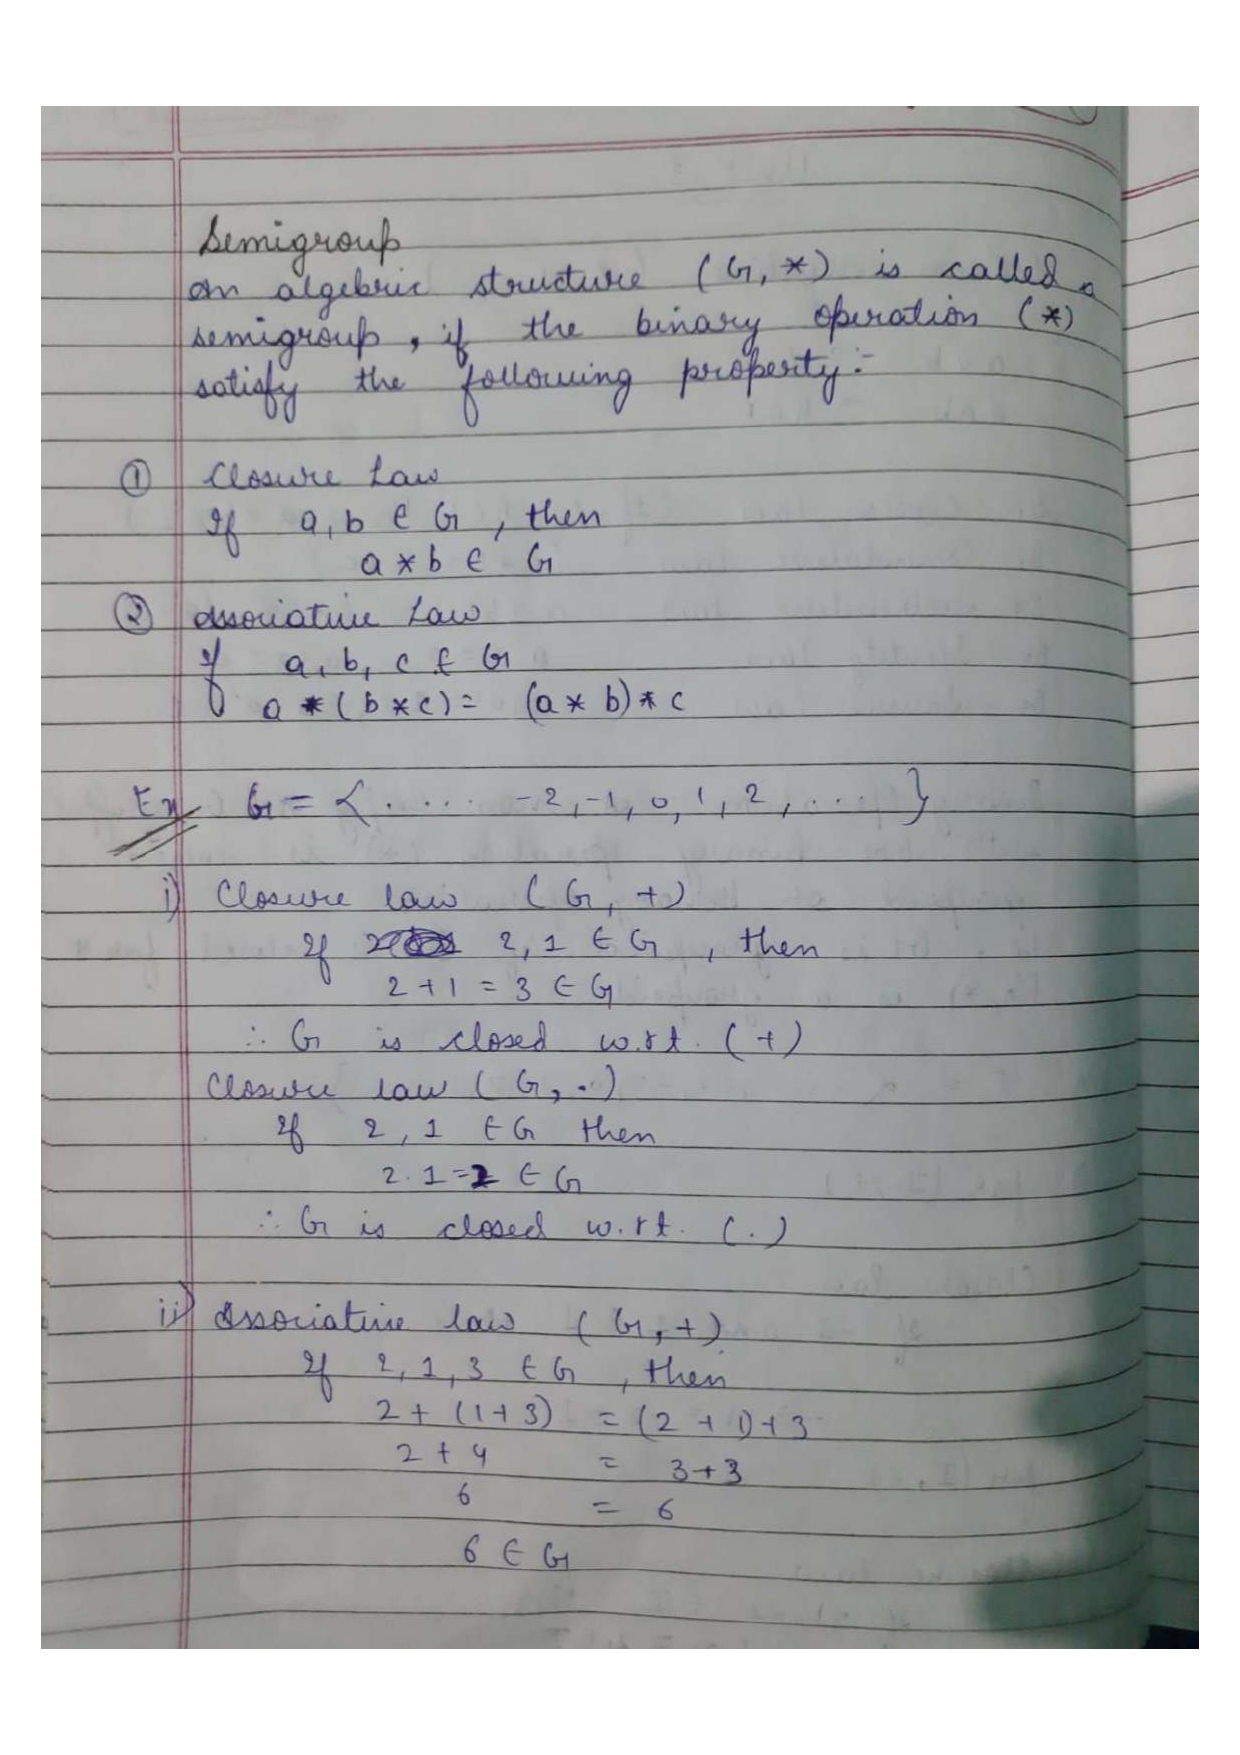 Semigroup
an algebric structure (G, *) is called a
semigroup, if the binary operation (*)
satisfy the following property :-
① Closure Law
If a, b ∈ G, then
a * b ∈ G
② Associative Law
If a, b, c ∈ G
a * (b * c) = (a * b) * c
Ex G = { ..... -2, -1, 0, 1, 2, .... }
i) Closure law (G, +)
If 2, 1 ∈ G, then
2 + 1 = 3 ∈ G
∴ G is closed w.r.t. (+)
Closure law (G, .)
If 2, 1 ∈ G then
2 . 1 = 2 ∈ G
∴ G is closed w.r.t. (.)
ii) Associative law (G, +)
If 2, 1, 3 ∈ G, then
2 + (1 + 3) = (2 + 1) + 3
2 + 4 = 3 + 3
6 = 6
6 ∈ G